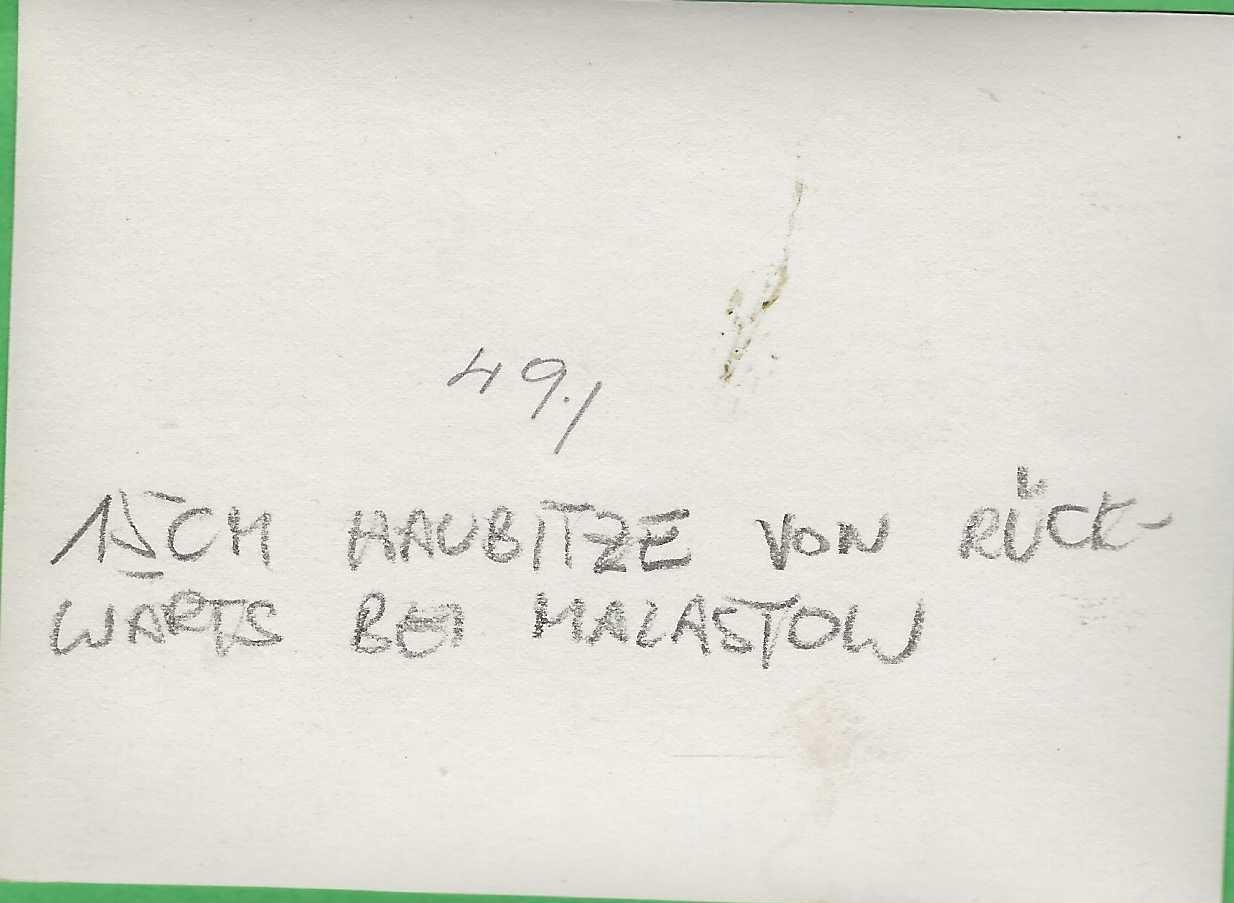 49./
15CM HAUBITZE VON RÜCK-
WÄRTS BEI MALASTOW